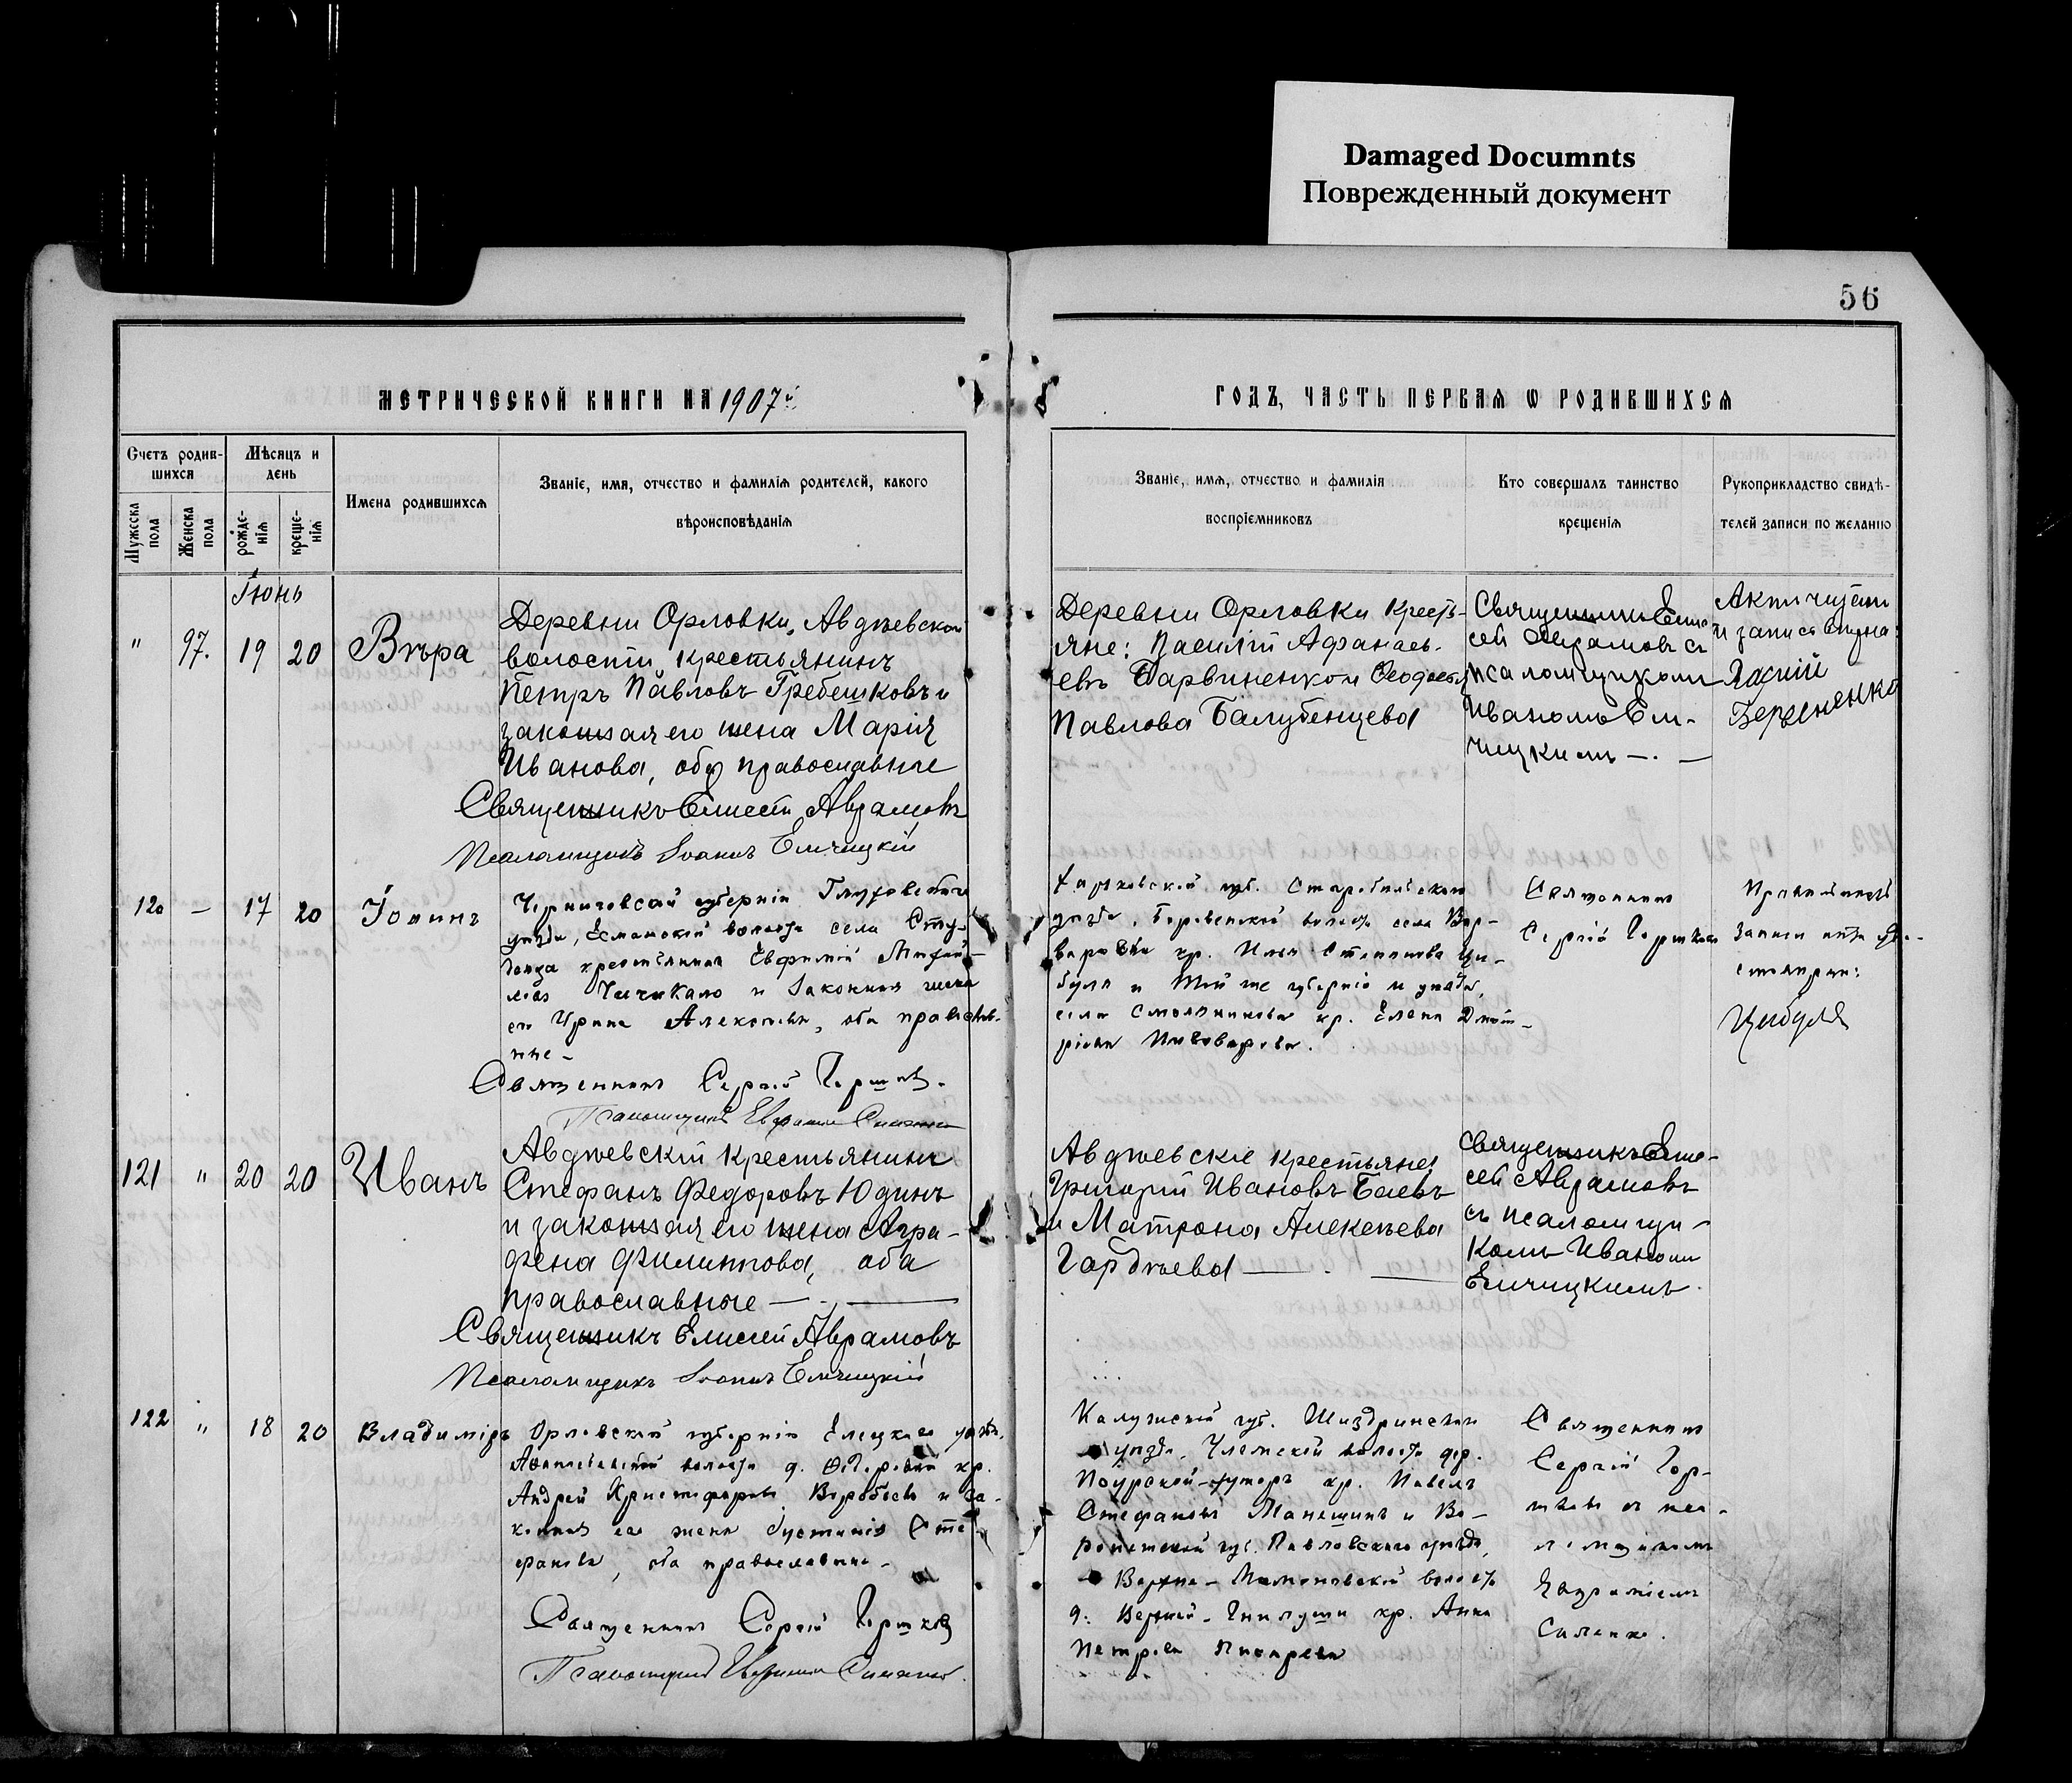 Damaged Documnts
Поврежденный документ
56
МЕТРИЧЕСКОЙ КНИГИ НА 1907й
ГОДЪ, ЧАСТЬ ПЕРВАЯ Ѡ РОДИВШИХСЯ
Счетъ родив-
шихся
Мужеска пола
Женска пола
Мѣсяцъ и
день
рожде-
нія
креще-
нія
Имена родившихся
Званіе, имя, отчество и фамилія родителей, какого
вѣроисповѣданія
Званіе, имя, отчество и фамилія
воспріемниковъ
Кто совершалъ таинство
крещенія
Рукоприкладство свидѣ-
телей записи по желанію
Іюнь
" 97. 19 20 Вѣра
Деревни Орловки, Авдѣевской
волости, крестьянинъ
Петръ Павловъ Гребешковъ и
законная его жена Марія
Иванова, оба православные
Священникъ Елисей Аврамовъ
Псаломщикъ Іоаннъ Елчицкій
Деревни Орловки кресть-
яне: Василій Афанась-
евъ
Павлова Балубенцева
Священникъ Ели-
сей Аврамовъ съ
псаломщикомъ
Иваномъ Ел-
чицкимъ
120 — 17 20 Іоаннъ
Черниговской губерніи Глуховскаго
уѣзда, Есманской волости села Сту-
крестьянинъ Евфимій Михай-
ловъ и законная жена
его Ирина Алексѣева, оба православ-
ные -
Священникъ Сергій Горшковъ.
Псаломщикъ
Харьковской губ. Старобѣльскаго
уѣзда, Боровенской волости села Вар-
варовки кр. Илья Степановъ Цы-
буля и той же губерніи и уѣзда,
села кр. Елена Дмит-
ріева Пивоварова.
Священникъ
Сергій Горшковъ
записи
Цыбуля
121 " 20 20 Иванъ
Авдѣевскій крестьянинъ
Стефанъ Федоровъ Юдинъ
и законная его жена Агра-
фена Филиппова, оба
православные
Священникъ Елисей Аврамовъ
Псаломщикъ Іоаннъ Елчицкій
Авдѣевскіе крестьяне:
Григорій Ивановъ Баевъ
и Матрона Алексѣева
Гордѣева
Священникъ Ели-
сей Аврамовъ
съ псаломщи-
комъ Иваномъ
Елчицкимъ.
122 " 18 20 Владиміръ
Орловской губерніи Елецкаго уѣзда,
волости д. кр.
Андрей Христофоровъ Воробьевъ и за-
конная его жена Іустинія Сте-
фанова, оба православные -
Священникъ Сергій Горшковъ
Псаломщикъ
Калужской губ. Жиздринскаго
уѣзда, волости дер.
хуторъ кр. Павелъ
Стефановъ Манешинъ и Во-
ронежской губ. Павловскаго уѣзда,
Верхне-Мамоновской волости
д. Верхней-Гнилуши кр. Анна
Петрова Писарева
Священникъ
Сергій Гор-
шковъ съ пса-
ломщикомъ